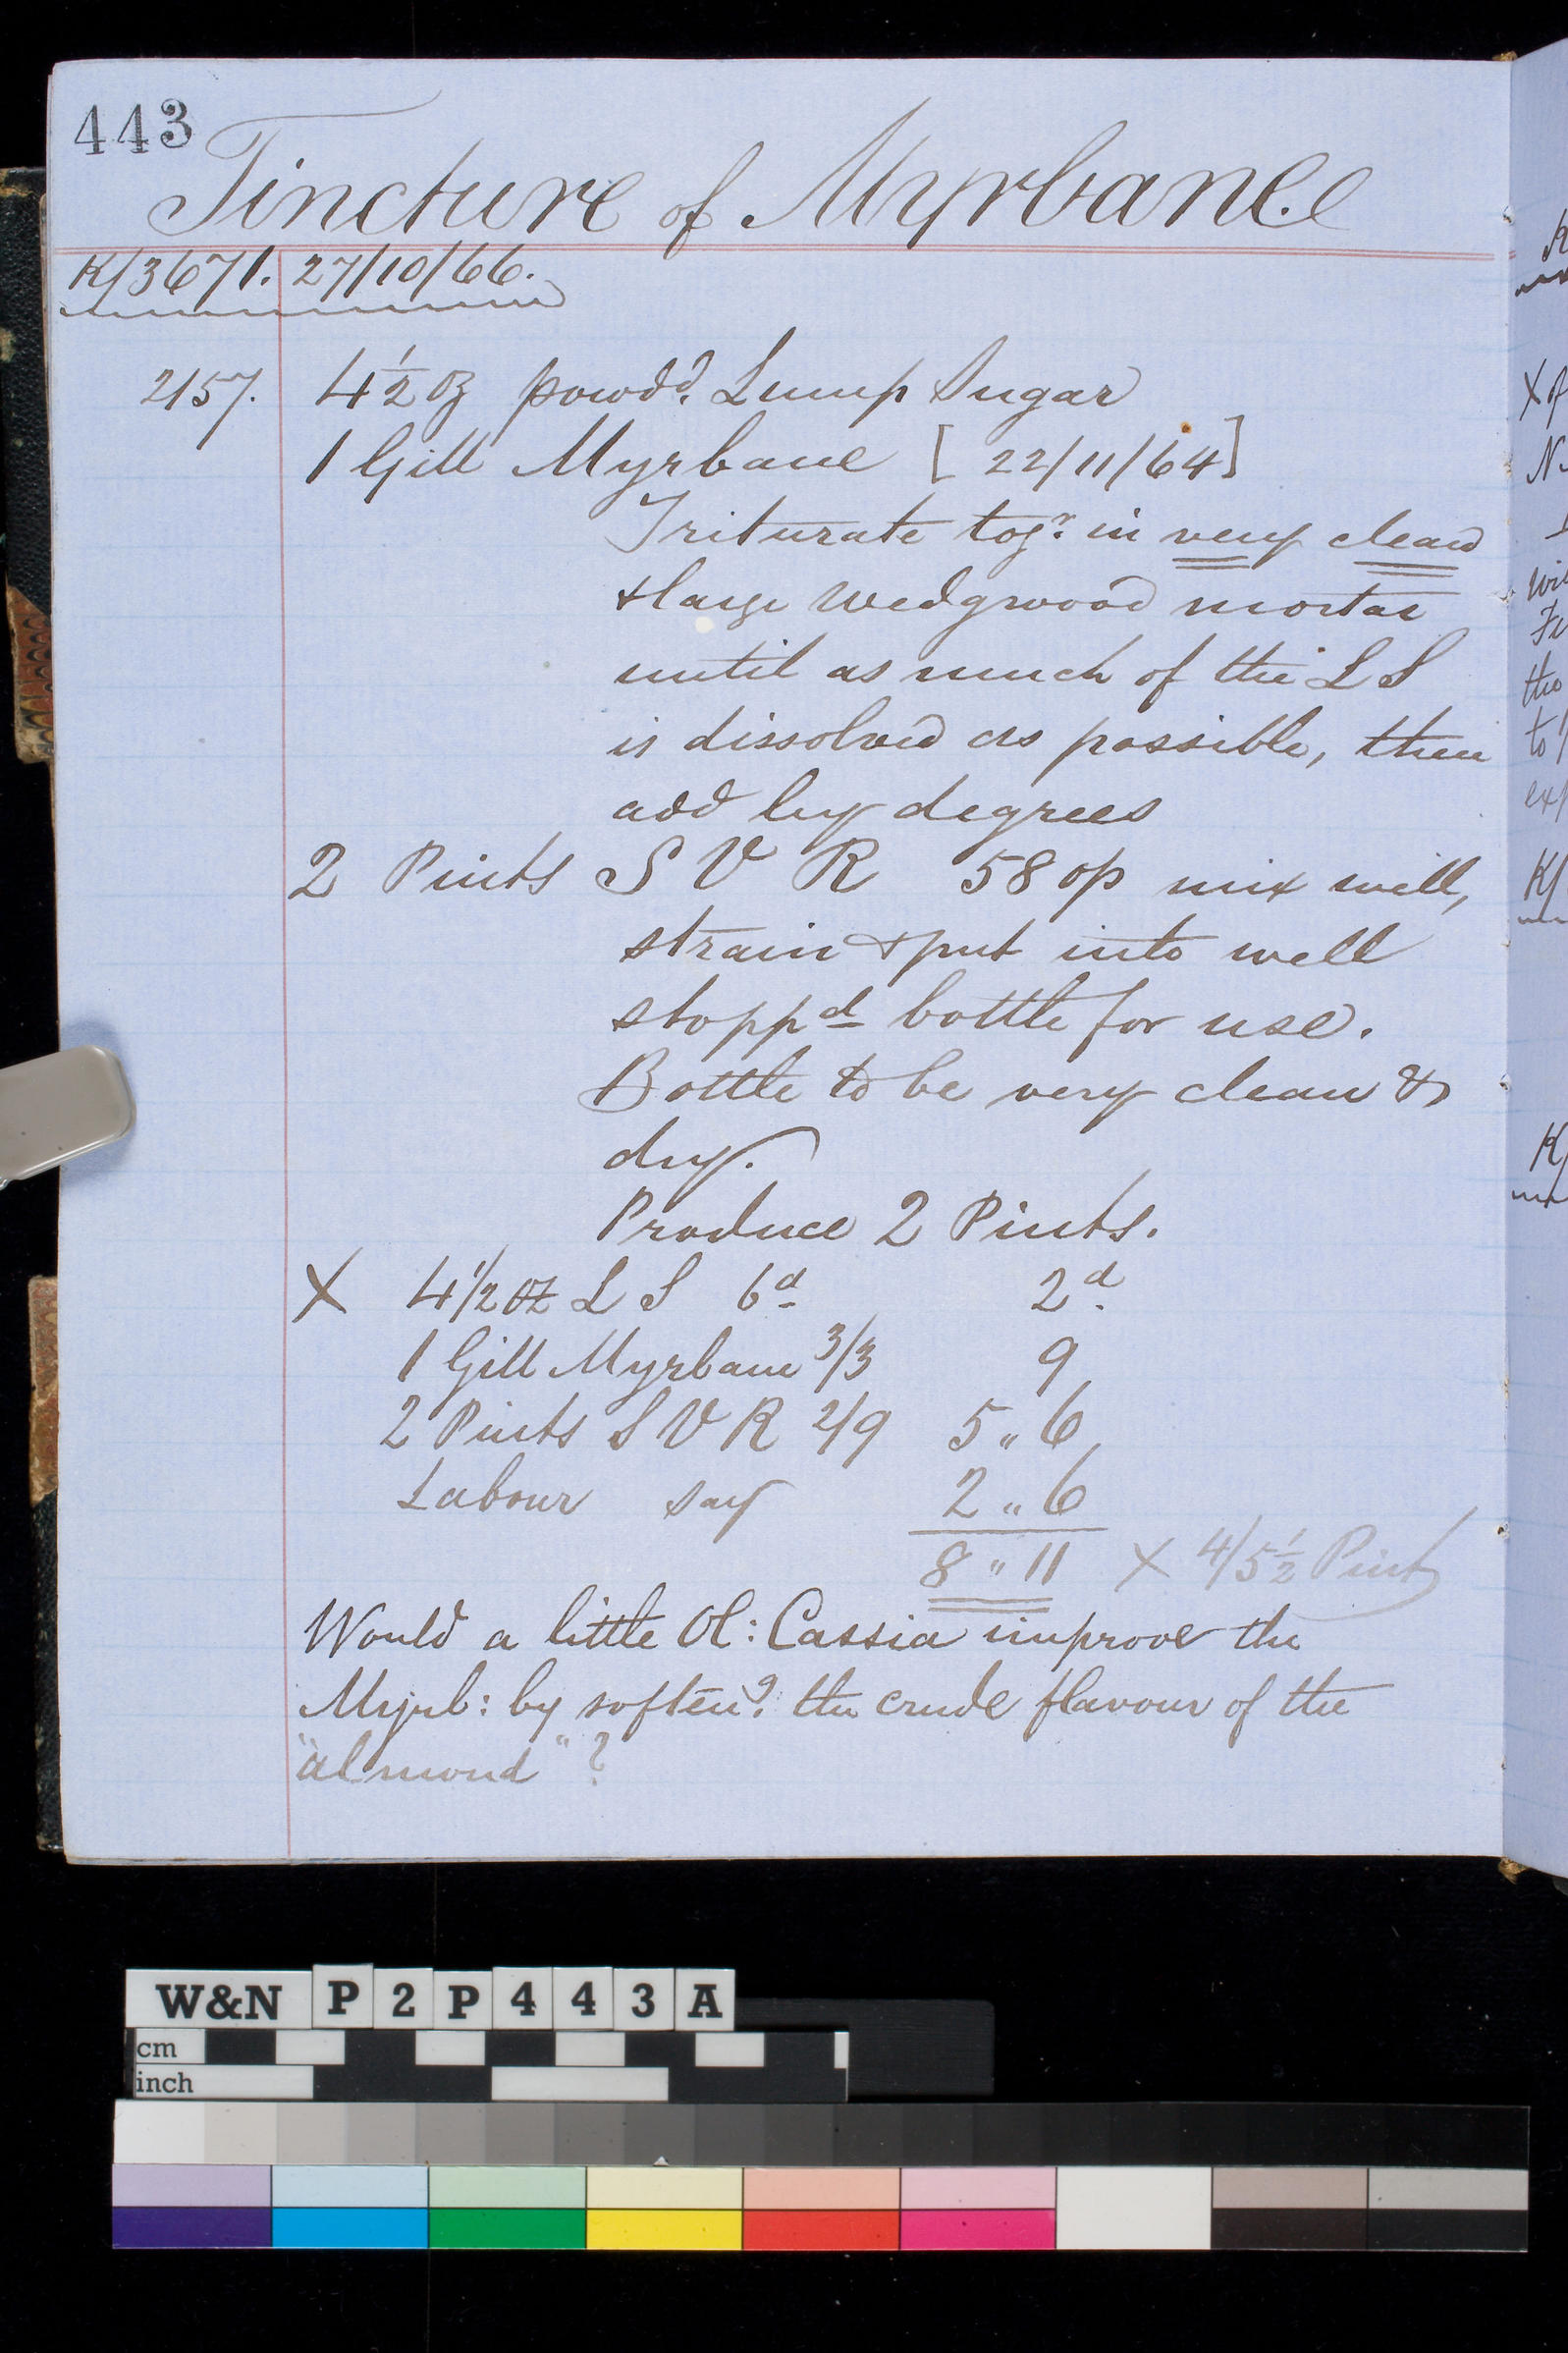 443
Tincture of Myrbane
K/3671. 27/10/66.
2157. 4½ oz powdd. Lump Sugar
1 Gill Myrbane [22/11/64]
Triturate togr. in very clean
& large Wedgwood mortar
until as much of the L S
is dissolved as possible, then
add by degrees
2 Pints S V R 58 op mix well,
strain & put into well
stoppd bottle for use.
Bottle to be very clean &
dry.
Produce 2 Pints.
X 4 1/2 oz L S 6d 2d.
1 Gill Myrbane 3/3 9
2 Pints S V R 2/9 5 " 6
Labour say 2 " 6
8 " 11 X 4/5½ Pint
Would a little Ol: Cassia improve the
Myrb: by softeng. the crude flavour of the
"almond" ?
W&N P2P443A
cm
inch